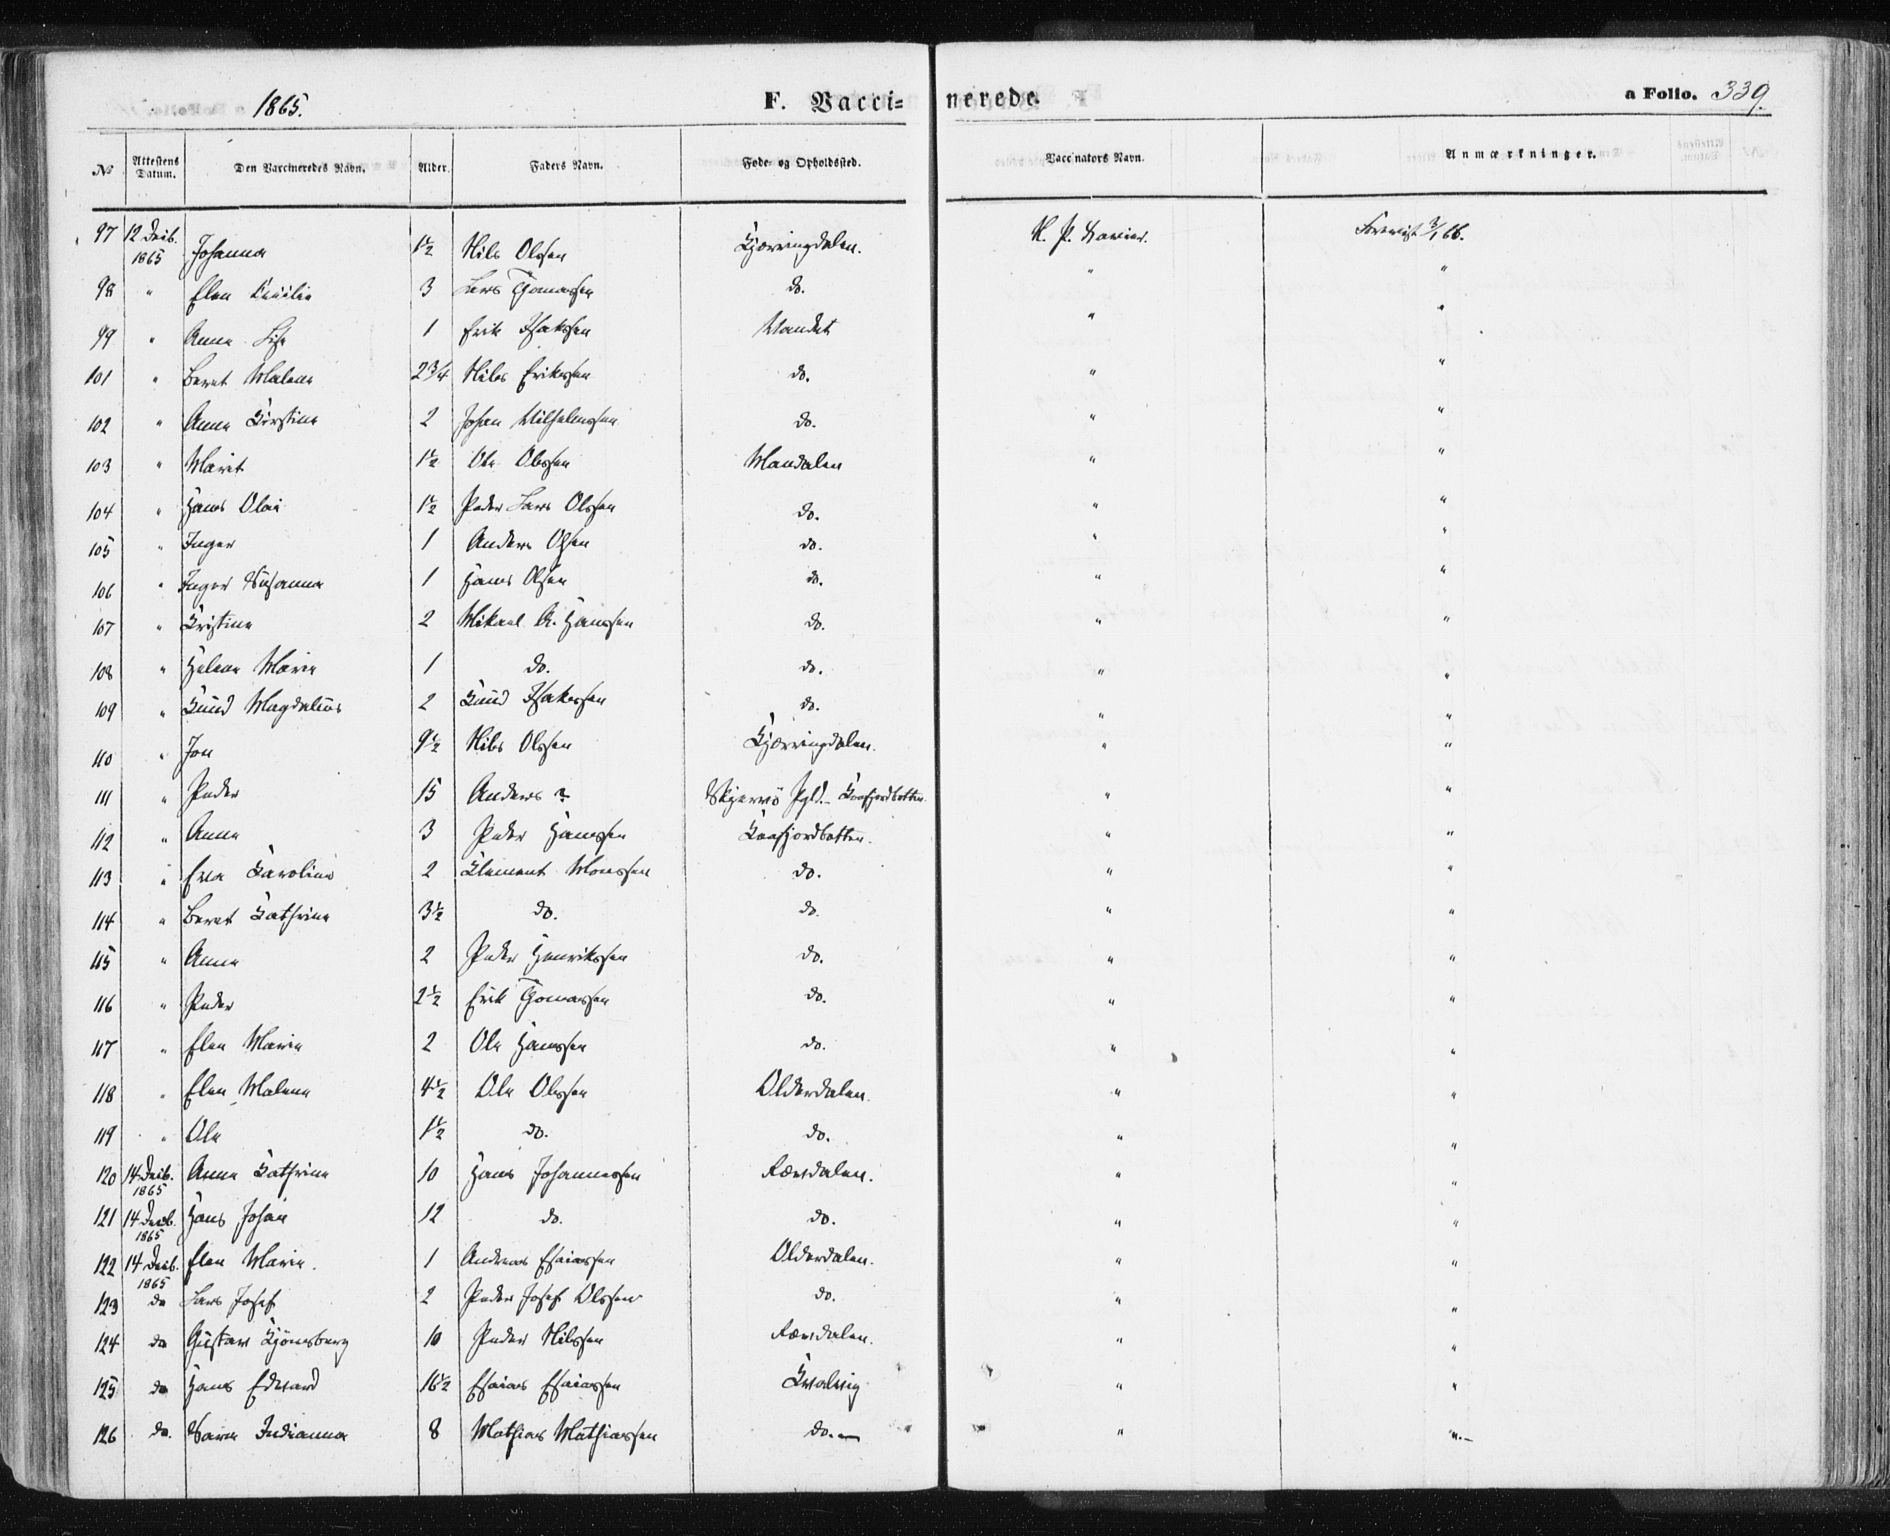 1865. F. Vaccinerede. a Folio. 339.
No Attestens Datum. Den Vaccineredes Navn. Alder. Faders Navn. Føde- og Opholdssted. Vaccinators Navn. Anmærkninger.
97 12 Decb. 1865 Johanna 1½ Nils Olsen Kjærringdalen. H. P. Forevist 3/1 66.
98 " Elen Cecilie 3 Lars Thomassen do. " "
99 " Anne Lise 1 Erik Isaksen Vandet " "
101 " Beret Malene 2¾ Nils Eriksen do. " "
102 " Anne Kirstine 2 Johan Wilhelmssen do. " "
103 " Marit 1½ Ole Olssen Mandalen " "
104 " Hans Olai 1½ Peder Lars Olssen do. " "
105 " Inger 1 Anders Olsen do. " "
106 " Inger Susanna 1 Hans Olsen do. " "
107 " Kristine 2 Mikael A. Hanssen do. " "
108 " Helene Marie 1 do. do. " "
109 " Knud Magdalius 2 Knud Isakssen do. " "
110 " Jon 9½ Nils Olssen Kjærringdalen. " "
111 " Peder 15 Anders ? Skjervö Pgld. - Kaafjordbotten. " "
112 " Anne 3 Peder Hanssen Kaafjordbotten. " "
113 " Eva Karoline 2 Klement Monssen do. " "
114 " Beret Kathrine 3½ do. do. " "
115 " Anne 2 Peder Henrikssen do. " "
116 " Peder 2½ Erik Thomassen do. " "
117 " Elen Marie 2 Ole Hanssen do. " "
118 " Elen Malene 4½ Ole Olssen Olderdalen. " "
119 " Ole 1½ do. do. " "
120 14 Decb. 1865 Anne Kathrine 10 Hans Johannessen " "
121 14 Decb. 1865 Hans Johan 12 do. do. " "
122 14 Decb. 1865 Elen Marie. 1 Andreas Esaiassen Olderdalen. " "
123 do Lars Josef 2 Peder Josef Olssen do. " "
124 do Gustav Kjönsberg 10 Peder Nilssen " "
125 do Hans Edvard 16½ Esaias Esaiassen Kvalvig " "
126 do. Sara Indianna 8 Mathias Mathiassen do. — " ".—